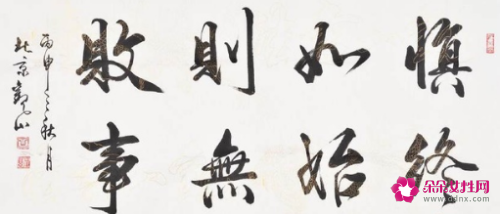 慎終
如始
則無
敗事
丙申之秋月
北京山
朵朵女性网